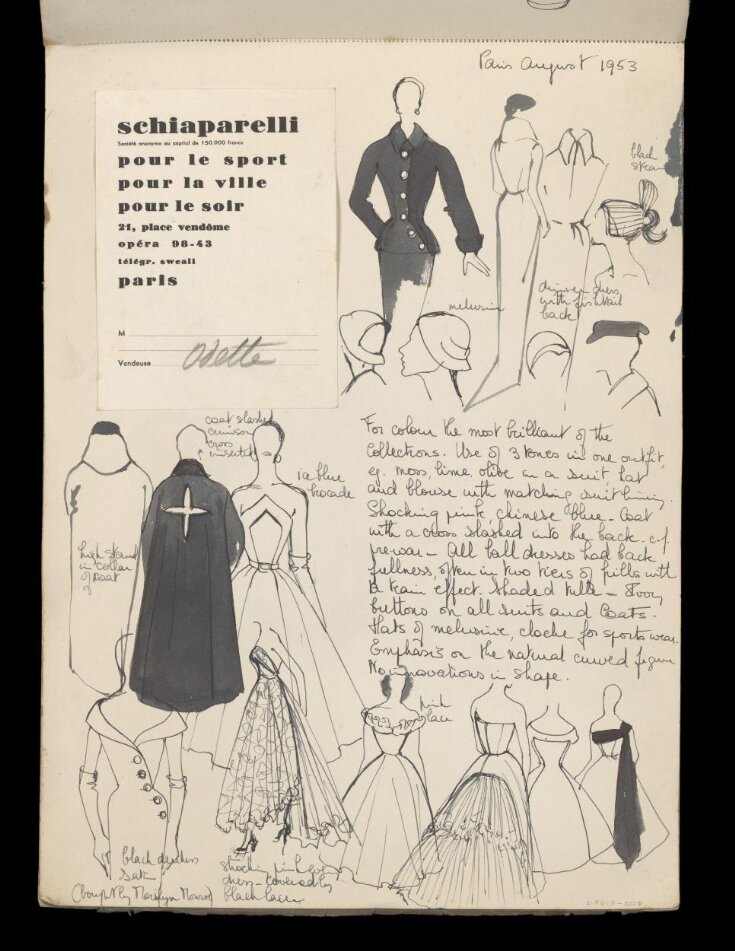 Paris August 1953
schiaparelli
Société anonyme au capital de 150.000 francs
pour le sport
pour la ville
pour le soir
21, place vendôme
opéra 98-43
télégr. sweali
paris
M
Vendeuse Odette
black
melusine
dinner dress
with fishtail
back
coat slashed
crimson
cross
inserted
ice blue
brocade
high stand
in collar
of coat
For colour the most brilliant of the
Collections. Use of 3 tones in one outfit,
eg. moss, lime, olive in a suit, hat
and blouse with matching suit lining.
Shocking pink, chinese blue - Coat
with a cross slashed into the back. c.f.
pre-war - All ball dresses had back
fullness, often in two tiers of frills with
a train effect. Shaded tulle - Ivory
buttons on all suits and Coats.
Hats of melusine, cloche for sportswear.
Emphasis on the natural curved figure
No innovations in shape.
pink
lace
black
(bought by Marilyn Monroe)
shocking pink
dress - covered by
black lace